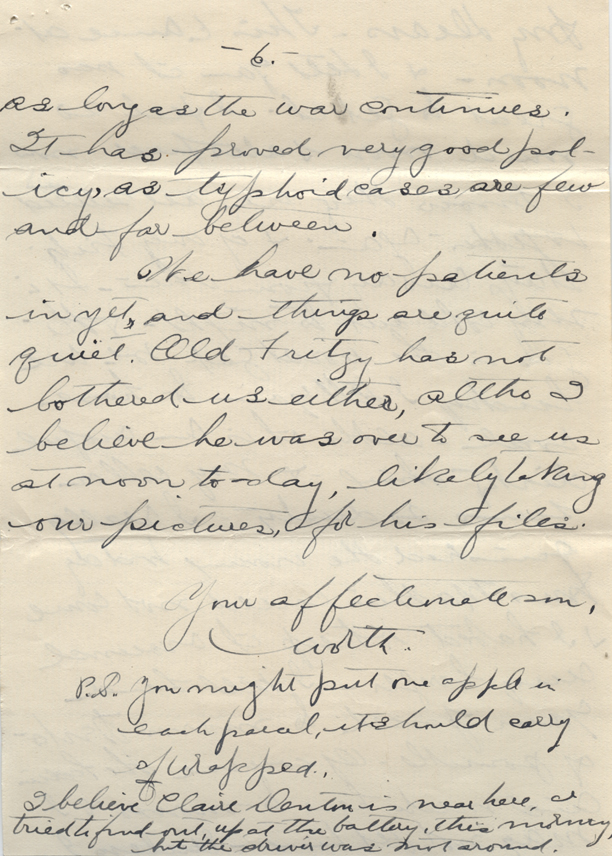 -6.-
as long as the war continues.
It has proved very good pol-
icy, as typhoid cases are few
and far between.
We have no patients
in yet, and things are quite
quiet. Old Fritzy has not
bothered us either, altho I
believe he was over to see us
at noon to-day, likely taking
our pictures, for his files.
Your affectionate son,
Worth.
P.S. You might put one apple in
each parcel, it should carry
if wrapped.
I believe Claire Denton is near here, as
tried to find out, up at the battery, this morning,
but the driver was not around.